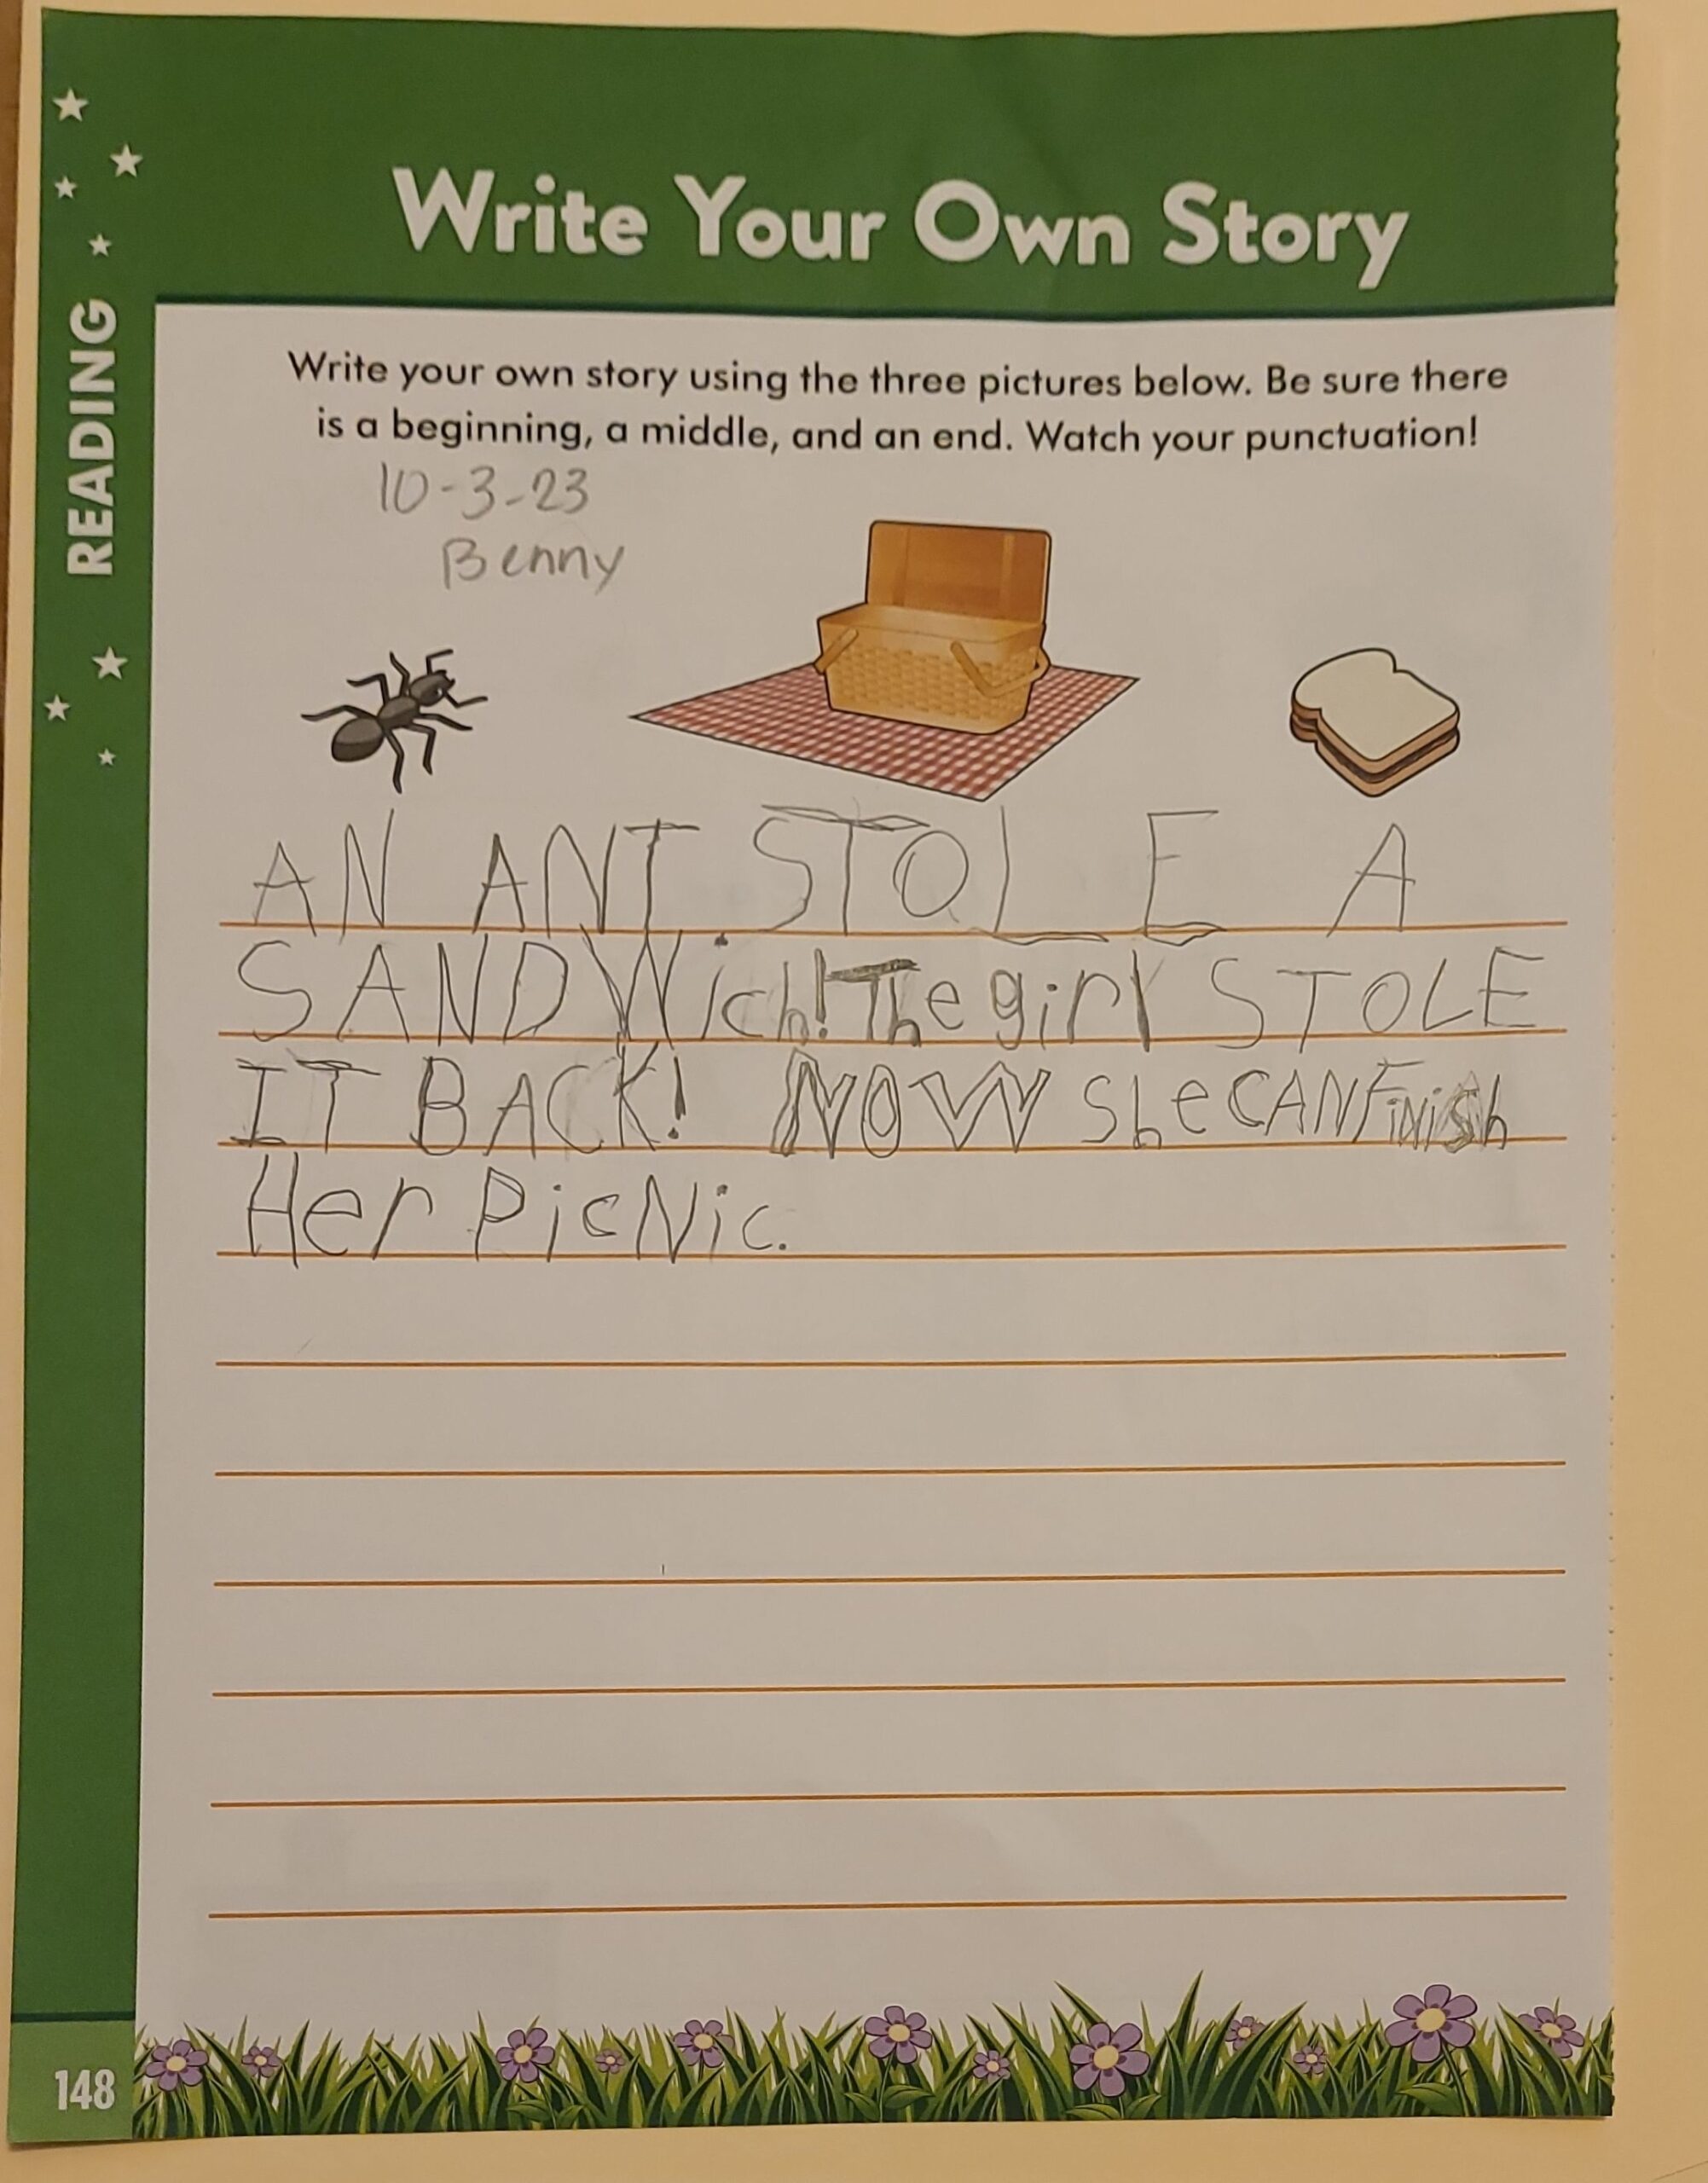 Write Your Own Story
READING
Write your own story using the three pictures below. Be sure there
is a beginning, a middle, and an end. Watch your punctuation!
10-3-23
Benny
AN ANT STOLE A
SANDWich! The girl STOLE
IT BACK! NOW She CAN FiNish
Her PicNic.
148